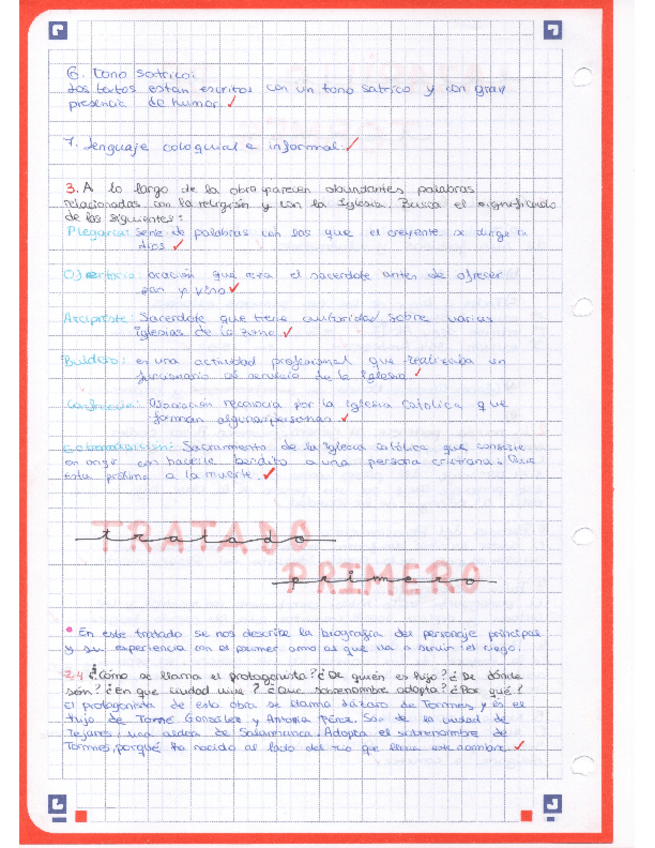 6. Tono satírico:
Los textos están escritos con un tono satrico y con gran
presencia de humor.
7. Lenguaje coloquial e informal.
3. A lo largo de la obra aparecen abundantes palabras
relacionadas con la religión y con la Iglesia. Busca el significado
de las siguientes:
Plegaria: serie de palabras con las que el creyente se dirige a
dios
Ofertorio: oración que reza el sacerdote antes de ofrecer
pan y vino
Arcipreste: Sacerdote que tiene autoridad sobre varias
iglesias de la zona.
Buldero: es una actividad profesional que realizaba un
funcionario al servicio de la Iglesia.
Cofradía: Asociación reconocia por la Iglesia Católica que
forman algunas personas.
Sacramento de la Iglesia católica que consiste
en ungir con haceite bendito a una persona cristiana.
esta próxima a la muerte.
TRATADO
tratado
PRIMERO
primero
En este tratado se nos describe la biografía del personaje principal
y su experiencia con el primer amo al que va a servir: el ciego.
2.4 ¿Cómo se llama el protagonista? ¿De quién es hijo? ¿De dónde
són? ¿En que ciudad vive? ¿Que sobrenombre adopta? ¿Por qué?
El protagonista de esta obra se llama Lázaro de Tormes y es el
hijo de Tomé González y Antona Pérez. Son de la ciudad de
Tejares, una aldea de Salamanca. Adopta el sobrenombre de
Tormes, porqué ha nacido al lado del río que lleva este nombre.